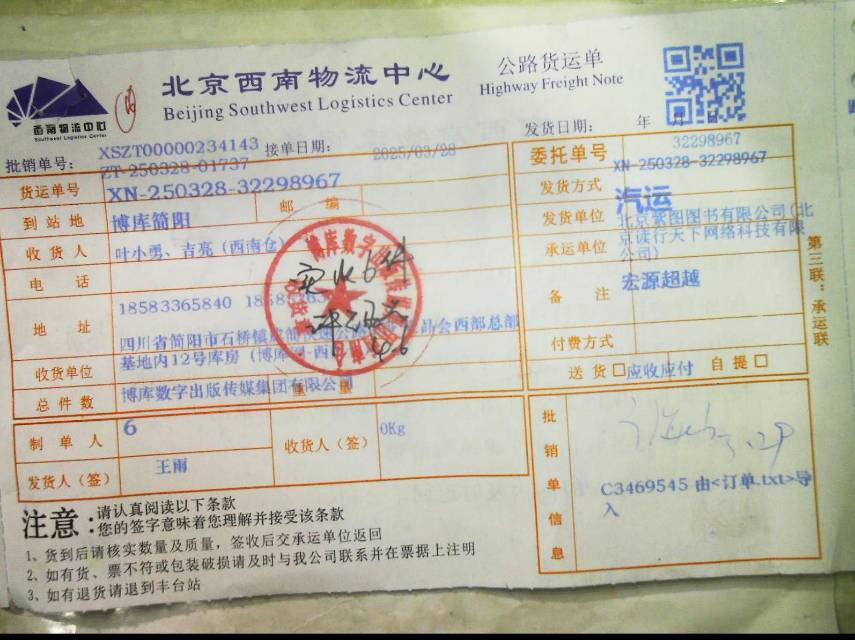 西南物流中心
Southwest Logistics Center
北京西南物流中心
Beijing Southwest Logistics Center
公路货运单
Highway Freight Note
发货日期： 年 月
批销单号： XSZT00000234143 接单日期： 2025/03/28
ZT-250328-01737
货运单号 XN-250328-32298967
委托单号 32298967
XN-250328-32298967
到站地 博库简阳 邮编
发货方式 汽运
收货人 叶小勇、吉亮（西南仓）
发货单位 北京紫图图书有限公司(北
京读行天下网络科技有限
公司)
承运单位
电话 18583365840
备注 宏源超越
实收6件
地址 四川省简阳市石桥镇
品会西部总部
基地内12号库房（博库
付费方式
收货单位 博库数字出版传媒集团有限公司
送货□应收应付 自提□
总件数 6
重量 0Kg
第三联：承运联
制单人 王雨
收货人（签）
发货人（签）
批销单信息
C3469545 由<订单.txt>导
入
注意：
请认真阅读以下条款
您的签字意味着您理解并接受该条款
1、货到后请核实数量及质量，签收后交承运单位返回
2、如有货、票不符或包装破损请及时与我公司联系并在票据上注明
3、如有退货请退到丰台站